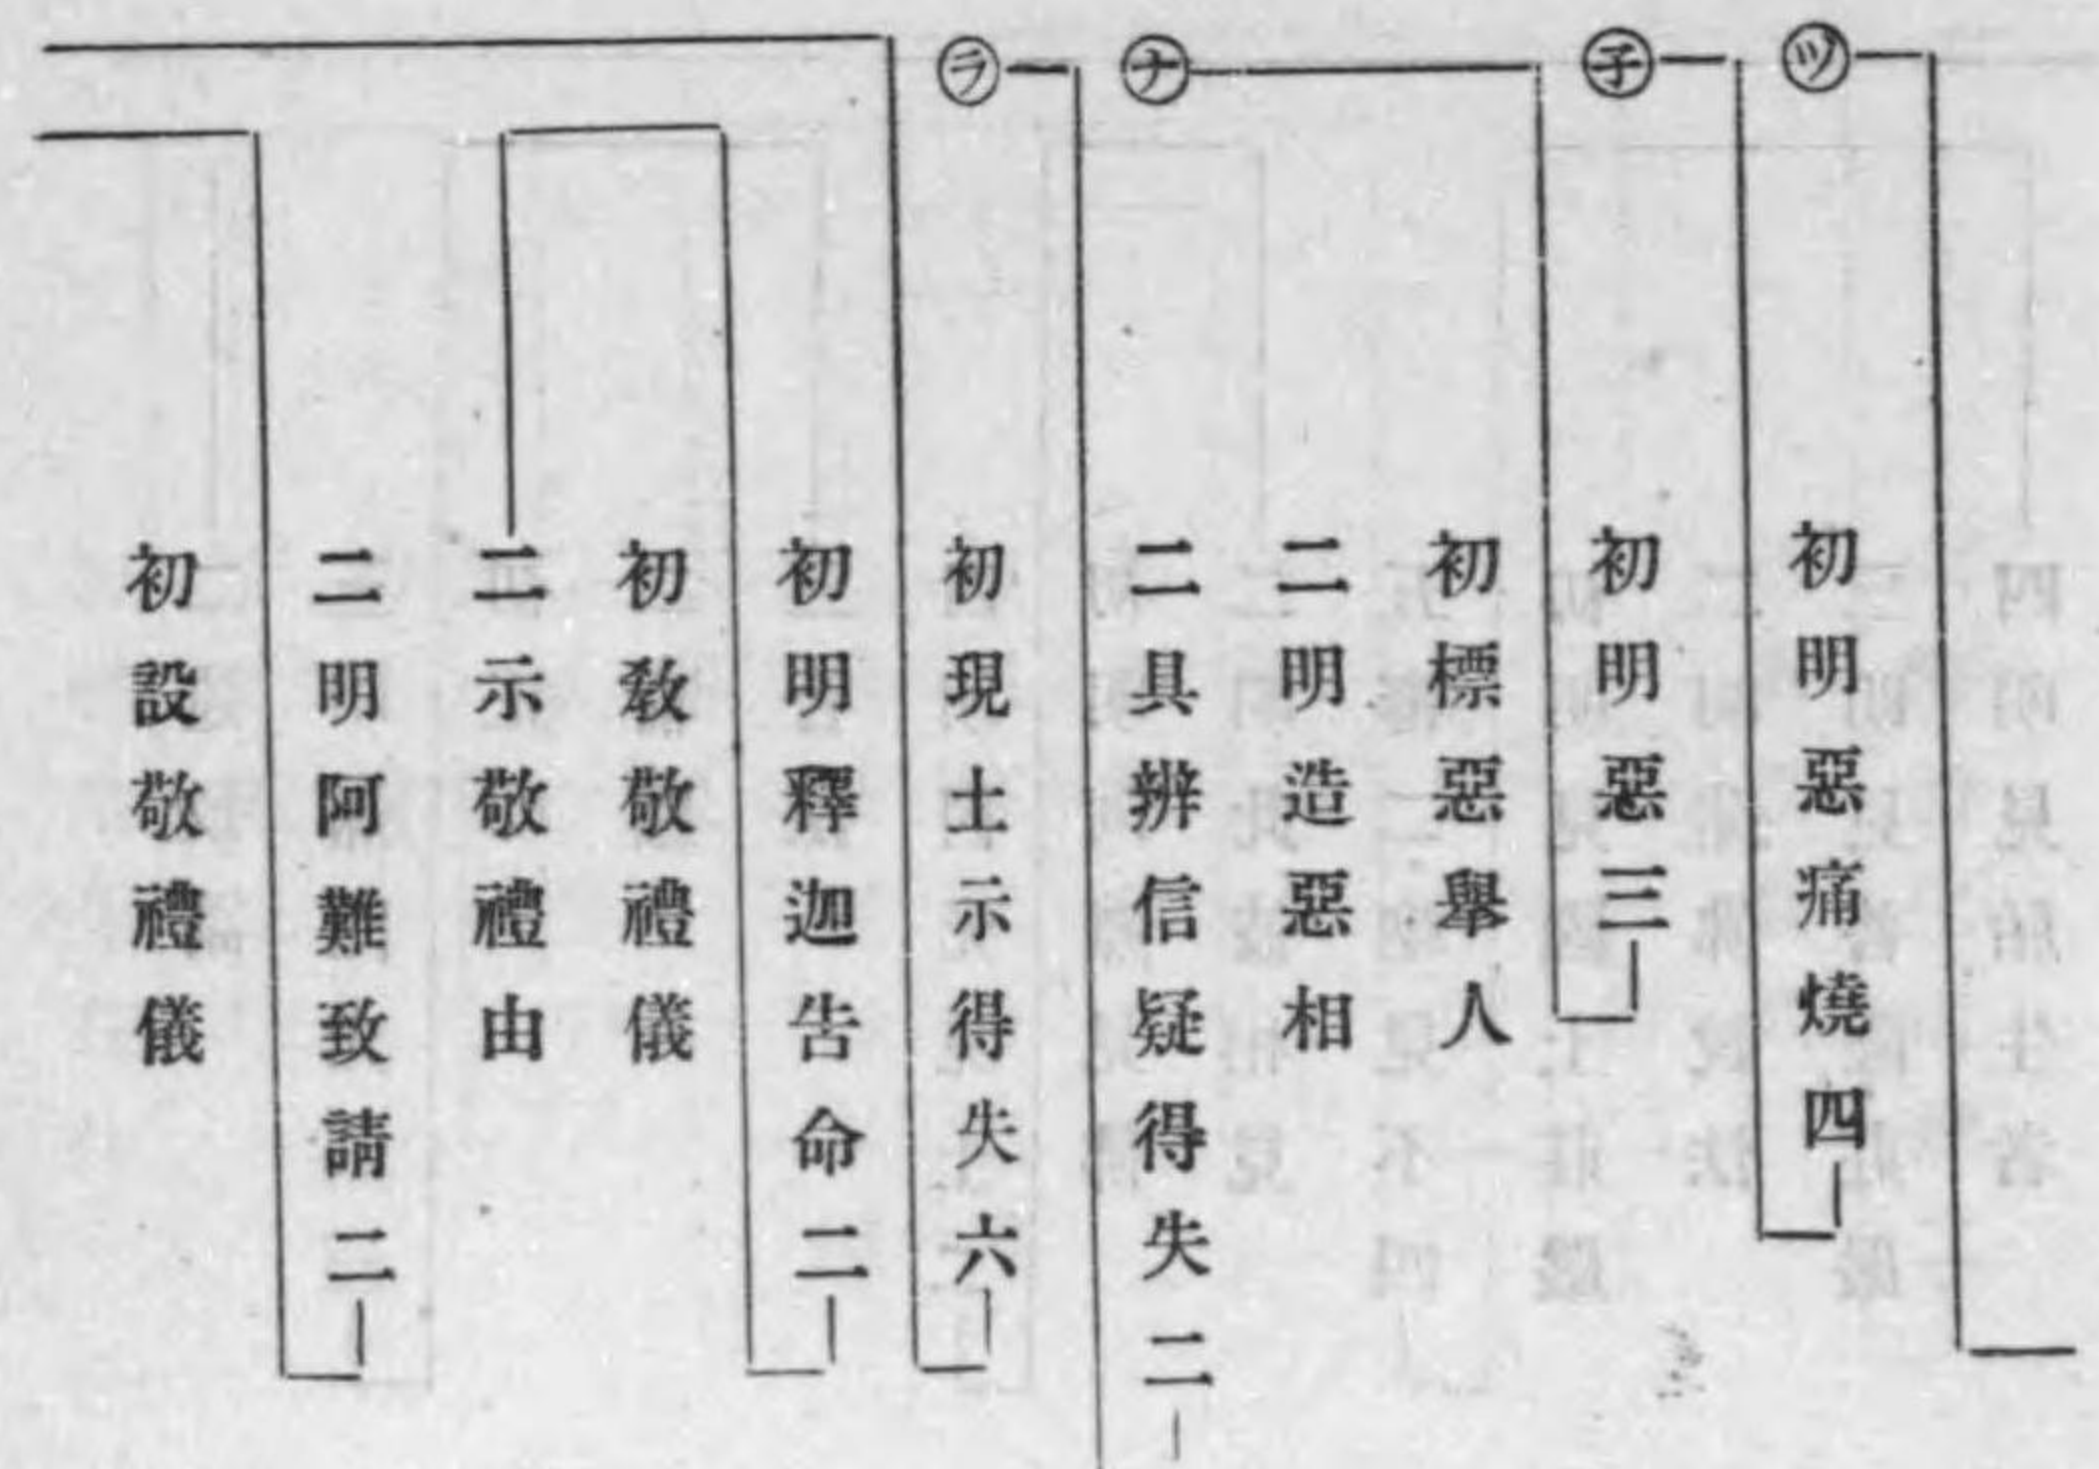 ツ
初明惡痛燒四
子
初明惡三
初標惡舉人
ナ
二明造惡相
二具辨信疑得失二
ラ
初現土示得失六
初明釋迦告命二
初敎敬禮儀
二示敬禮由
二明阿難致請二
初設敬禮儀